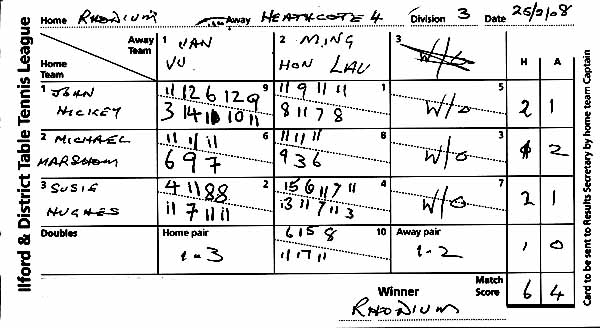 Ilford & District Table Tennis League
Home RHODIUM Away HEATHCOTE 4 Division 3 Date 25/2/08
Away Team 1 VAN VU 2 MING HON LAU 3 W/O H A
Home Team
1 JOHN HICKEY 9 1 5 2 1
11 12 6 12 9 11 9 11 11 W/O
3 14 11 10 11 8 11 7 8
2 MICHAEL MARSHOM 6 8 3 2
11 11 11 11 11 11 W/O
6 9 7 9 3 6
3 SUSIE HUGHES 2 4 7 2 1
4 11 8 8 15 6 11 7 11 W/O
11 7 11 11 13 11 7 11 3
Doubles Home pair 10 Away pair 1 0
1-3 6 15 8 1-2
11 17 11
Winner Match Score 6 4
RHODIUM
Card to be sent to Results Secretary by home team Captain